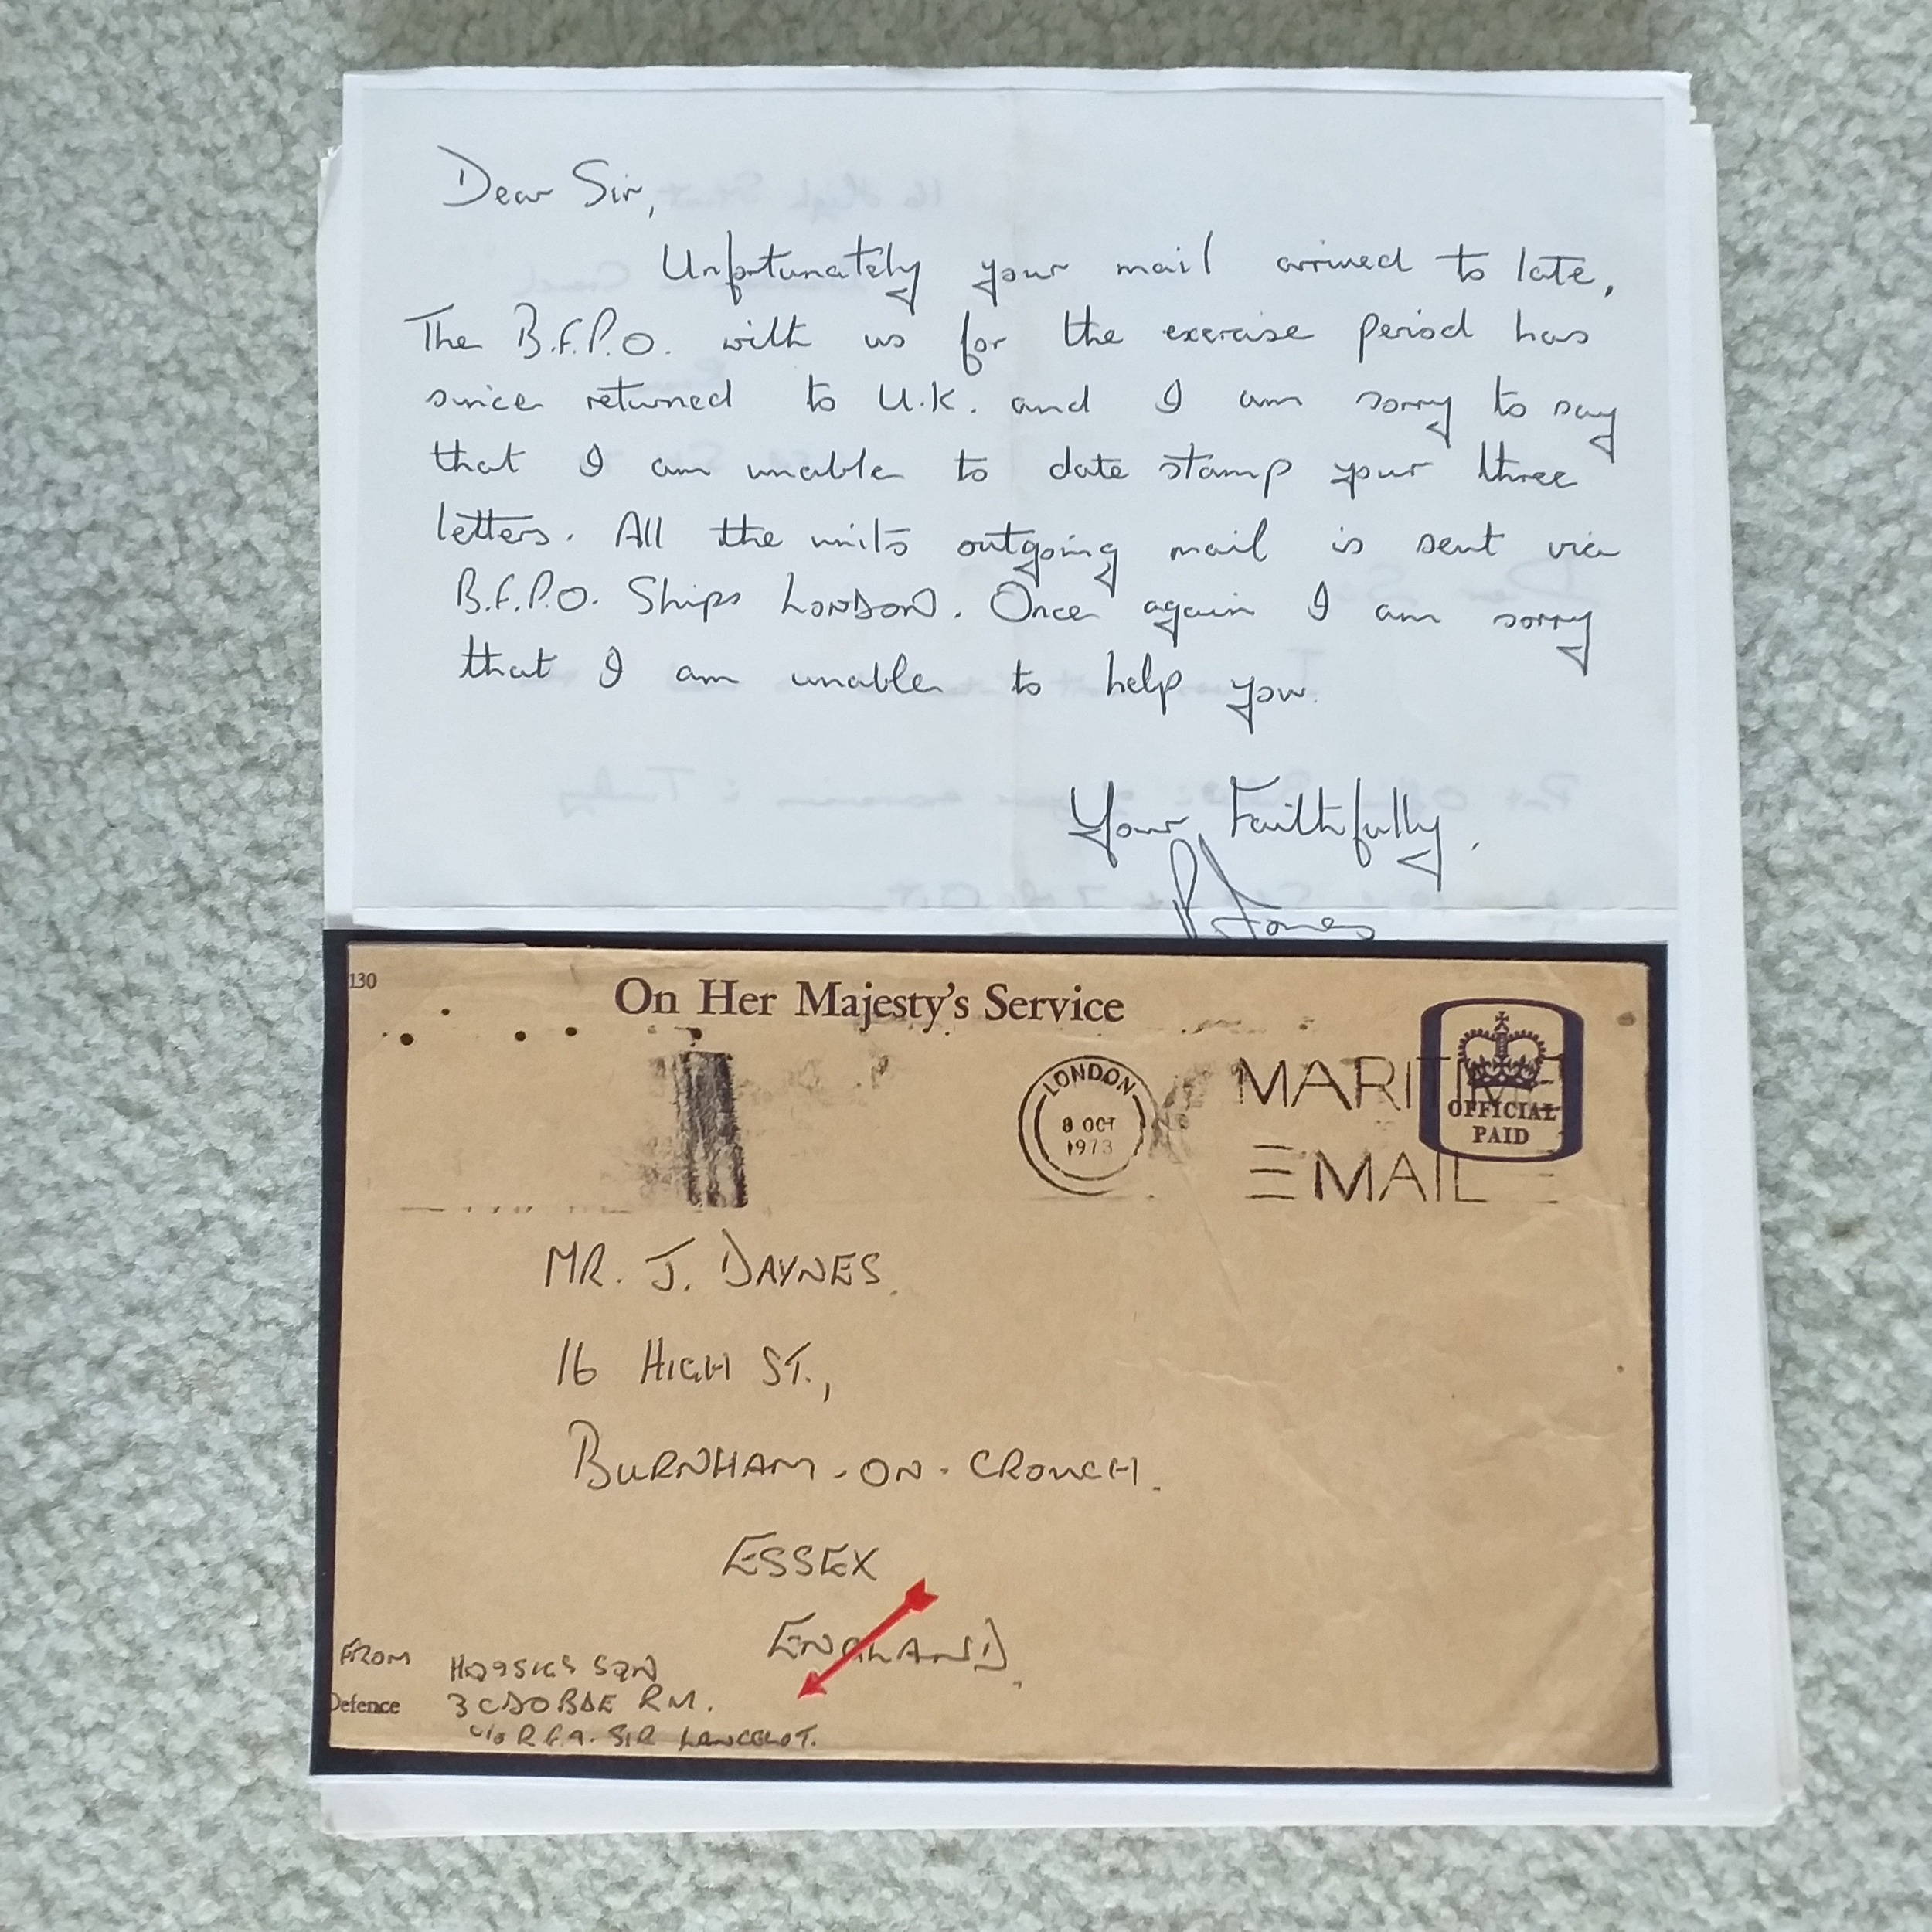 Dear Sir,
Unfortunately your mail arrived to late,
The B.F.P.O. with us for the exercise period has
since returned to U.K. and I am sorry to say
that I am unable to date stamp your three
letters. All the units outgoing mail is sent via
B.F.P.O. Ships LONDON. Once again I am sorry
that I am unable to help you.
Your Faithfully.
P Jones
130
On Her Majesty's Service
LONDON
8 OCT
1973
MARITIME
MAIL
OFFICIAL
PAID
MR. J. DAYNES.
16 HIGH ST.,
BURNHAM-ON-CROUCH.
ESSEX
ENGLAND.
FROM
SQN
Defence
3 CDO BDE RM.
c/o R.F.A. SIR LANCELOT.